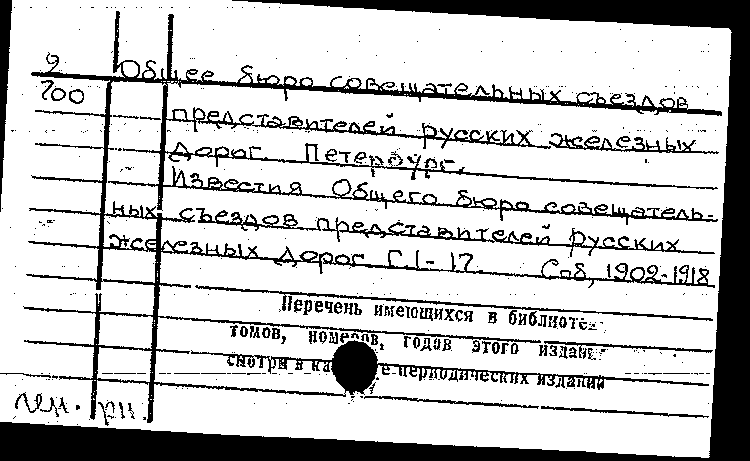 9 Общее бюро совещательных съездов
700
представителей русских железных
дорог. Петербург.
Известия Общего бюро совещатель-
ных съездов представителей русских
железных дорог Г.1-17. Спб, 1902-1918
Перечень имеющихся в библиоте
томов, номеров, годов этого издан
смотри в ка е периодических изданий